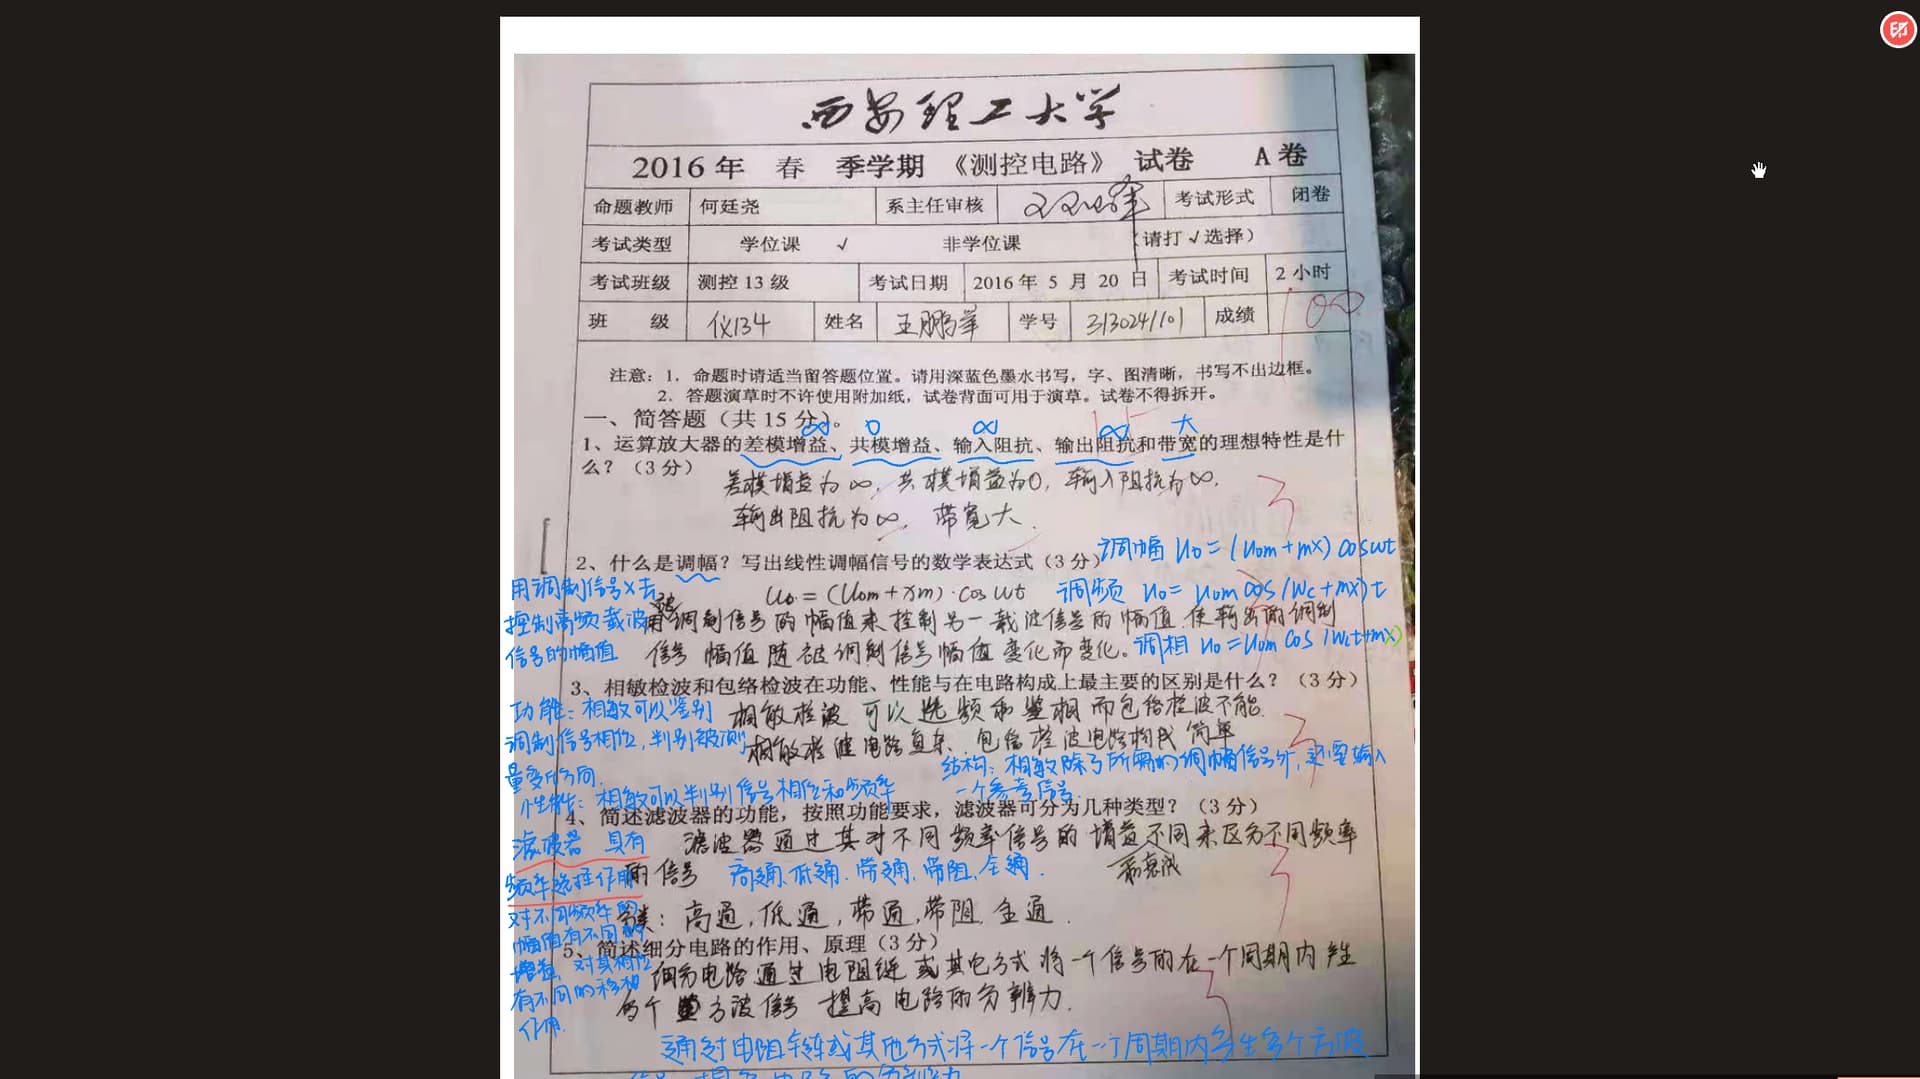 西安理工大学
2016年 春 季学期 《测控电路》 试卷 A卷
命题教师 何廷尧 系主任审核 考试形式 闭卷
考试类型 学位课 √ 非学位课 (请打√选择)
考试班级 测控13级 考试日期 2016年 5 月 20 日 考试时间 2小时
班 级 仪134 姓名 王鹏举 学号 3130241101 成绩 100
注意：1. 命题时请适当留答题位置。请用深蓝色墨水书写，字、图清晰，书写不出边框。
2. 答题演草时不许使用附加纸，试卷背面可用于演草。试卷不得拆开。
一、简答题（共15分）。
∞ 0 ∞ ∞ 大
1、运算放大器的差模增益、共模增益、输入阻抗、输出阻抗和带宽的理想特性是什
么？（3分）
差模增益为∞, 共模增益为0, 输入阻抗为∞.
输出阻抗为∞, 带宽大.
3
2、什么是调幅？写出线性调幅信号的数学表达式（3分）
调幅 uo=(uom+mx)coswt
uo=(Uom+xm)·coswt
调频 uo=uomcos(wc+mx)t
用调制信号x去
控制高频载波
信号的幅值
用调制信号的幅值来控制另一载波信号的幅值,使输出的调制
信号幅值随被调制信号幅值变化而变化。
调相 uo=uom cos(wct+mx)
3、相敏检波和包络检波在功能、性能与在电路构成上最主要的区别是什么？（3分）
功能：相敏可以鉴别
调制信号相位,判别被测
量变化方向.
相敏检波可以选频和鉴相而包络检波不能.
相敏检波电路复杂、包络检波电路构成简单
3
结构：相敏除了所需的调幅信号外,还要输入
一个参考信号.
性能：相敏可以判别信号相位和频率
4、简述滤波器的功能，按照功能要求，滤波器可分为几种类型？（3分）
滤波器 具有
频率选择作用
对不同频率的
幅值有不同的
增益、对其相位
有不同的移相
作用.
滤波器通过其对不同频率信号的增益不同来区分不同频率
和衰减
的信号
高通、低通、带通、带阻、全通.
3
分类：高通,低通,带通,带阻.全通.
5、简述细分电路的作用、原理（3分）
细分电路通过电阻链或其它方式将一个信号的在一个周期内产生
多个方波信号 提高电路的分辨力.
3
通过电阻链或其他方式将一个信号在一个周期内产生多个方波